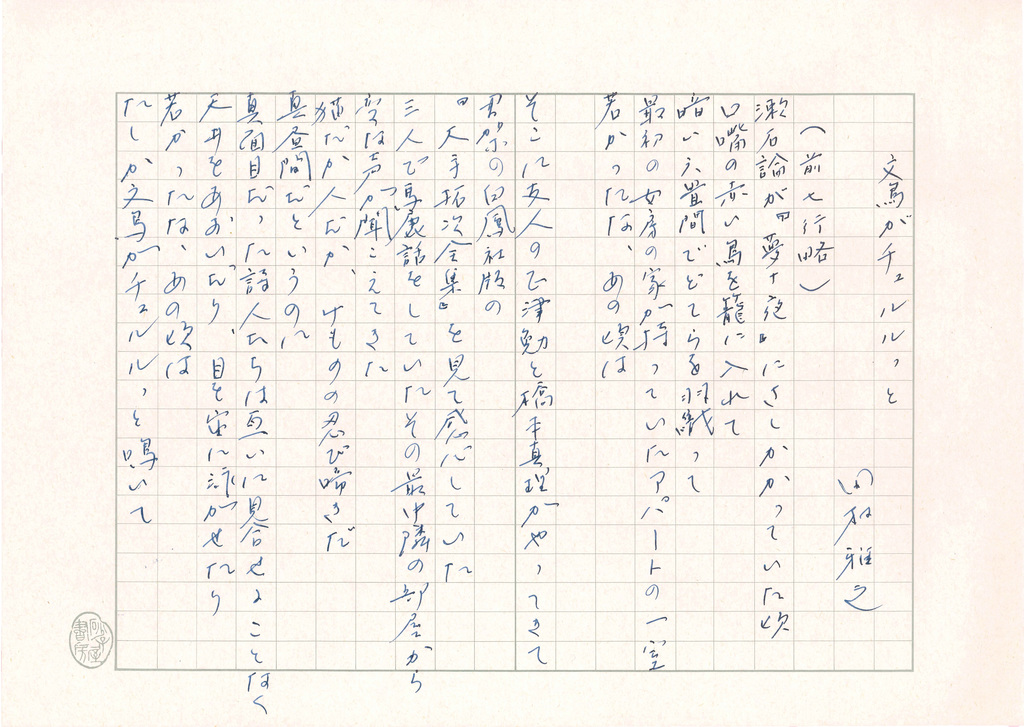 文鳥がチュルルっと
田村雅之
(前七行略)
漱石論が『夢十夜』にさしかかっていた頃
口嘴の赤い鳥を籠に入れて
暗い六畳間でどてらを羽織って
最初の女房の家が持っていたアパートの一室
若かったな、あの頃は
そこに友人の正津勉と橋本真理がやってきて
君らの白鳳社版の
『大手拓次全集』を見て感心していた
三人で馬鹿話をしていたその最中隣の部屋から
変な声が聞こえてきた
猫だか人だか、けものの忍び啼きだ
真昼間だというのに
真面目だった詩人たちは互いに見合せることなく
天井をあおいだり、目を宙に泳がせたり
若かったな、あの頃は
たしか文鳥がチュルルっと鳴いて
砂子屋書房